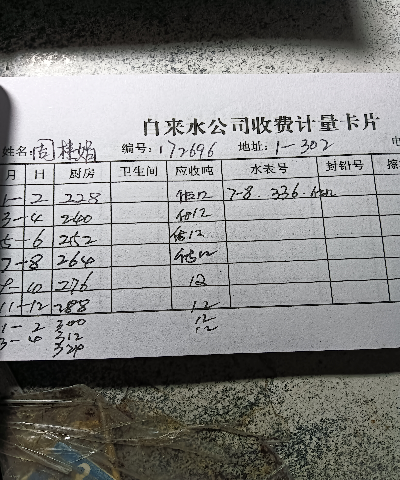 自来水公司收费计量卡片
姓名: 桂娟 编号: 172696 地址: 1-302
月 日 厨房 卫生间 应收吨 水表号 封铅号
1-2 228 估12 7-8. 336. 估12
3-4 240 估12
5-6 252 估12
7-8 264 估12
9-10 276 12
11-12 288 12
1-2 300 12
3-4 312 12
324